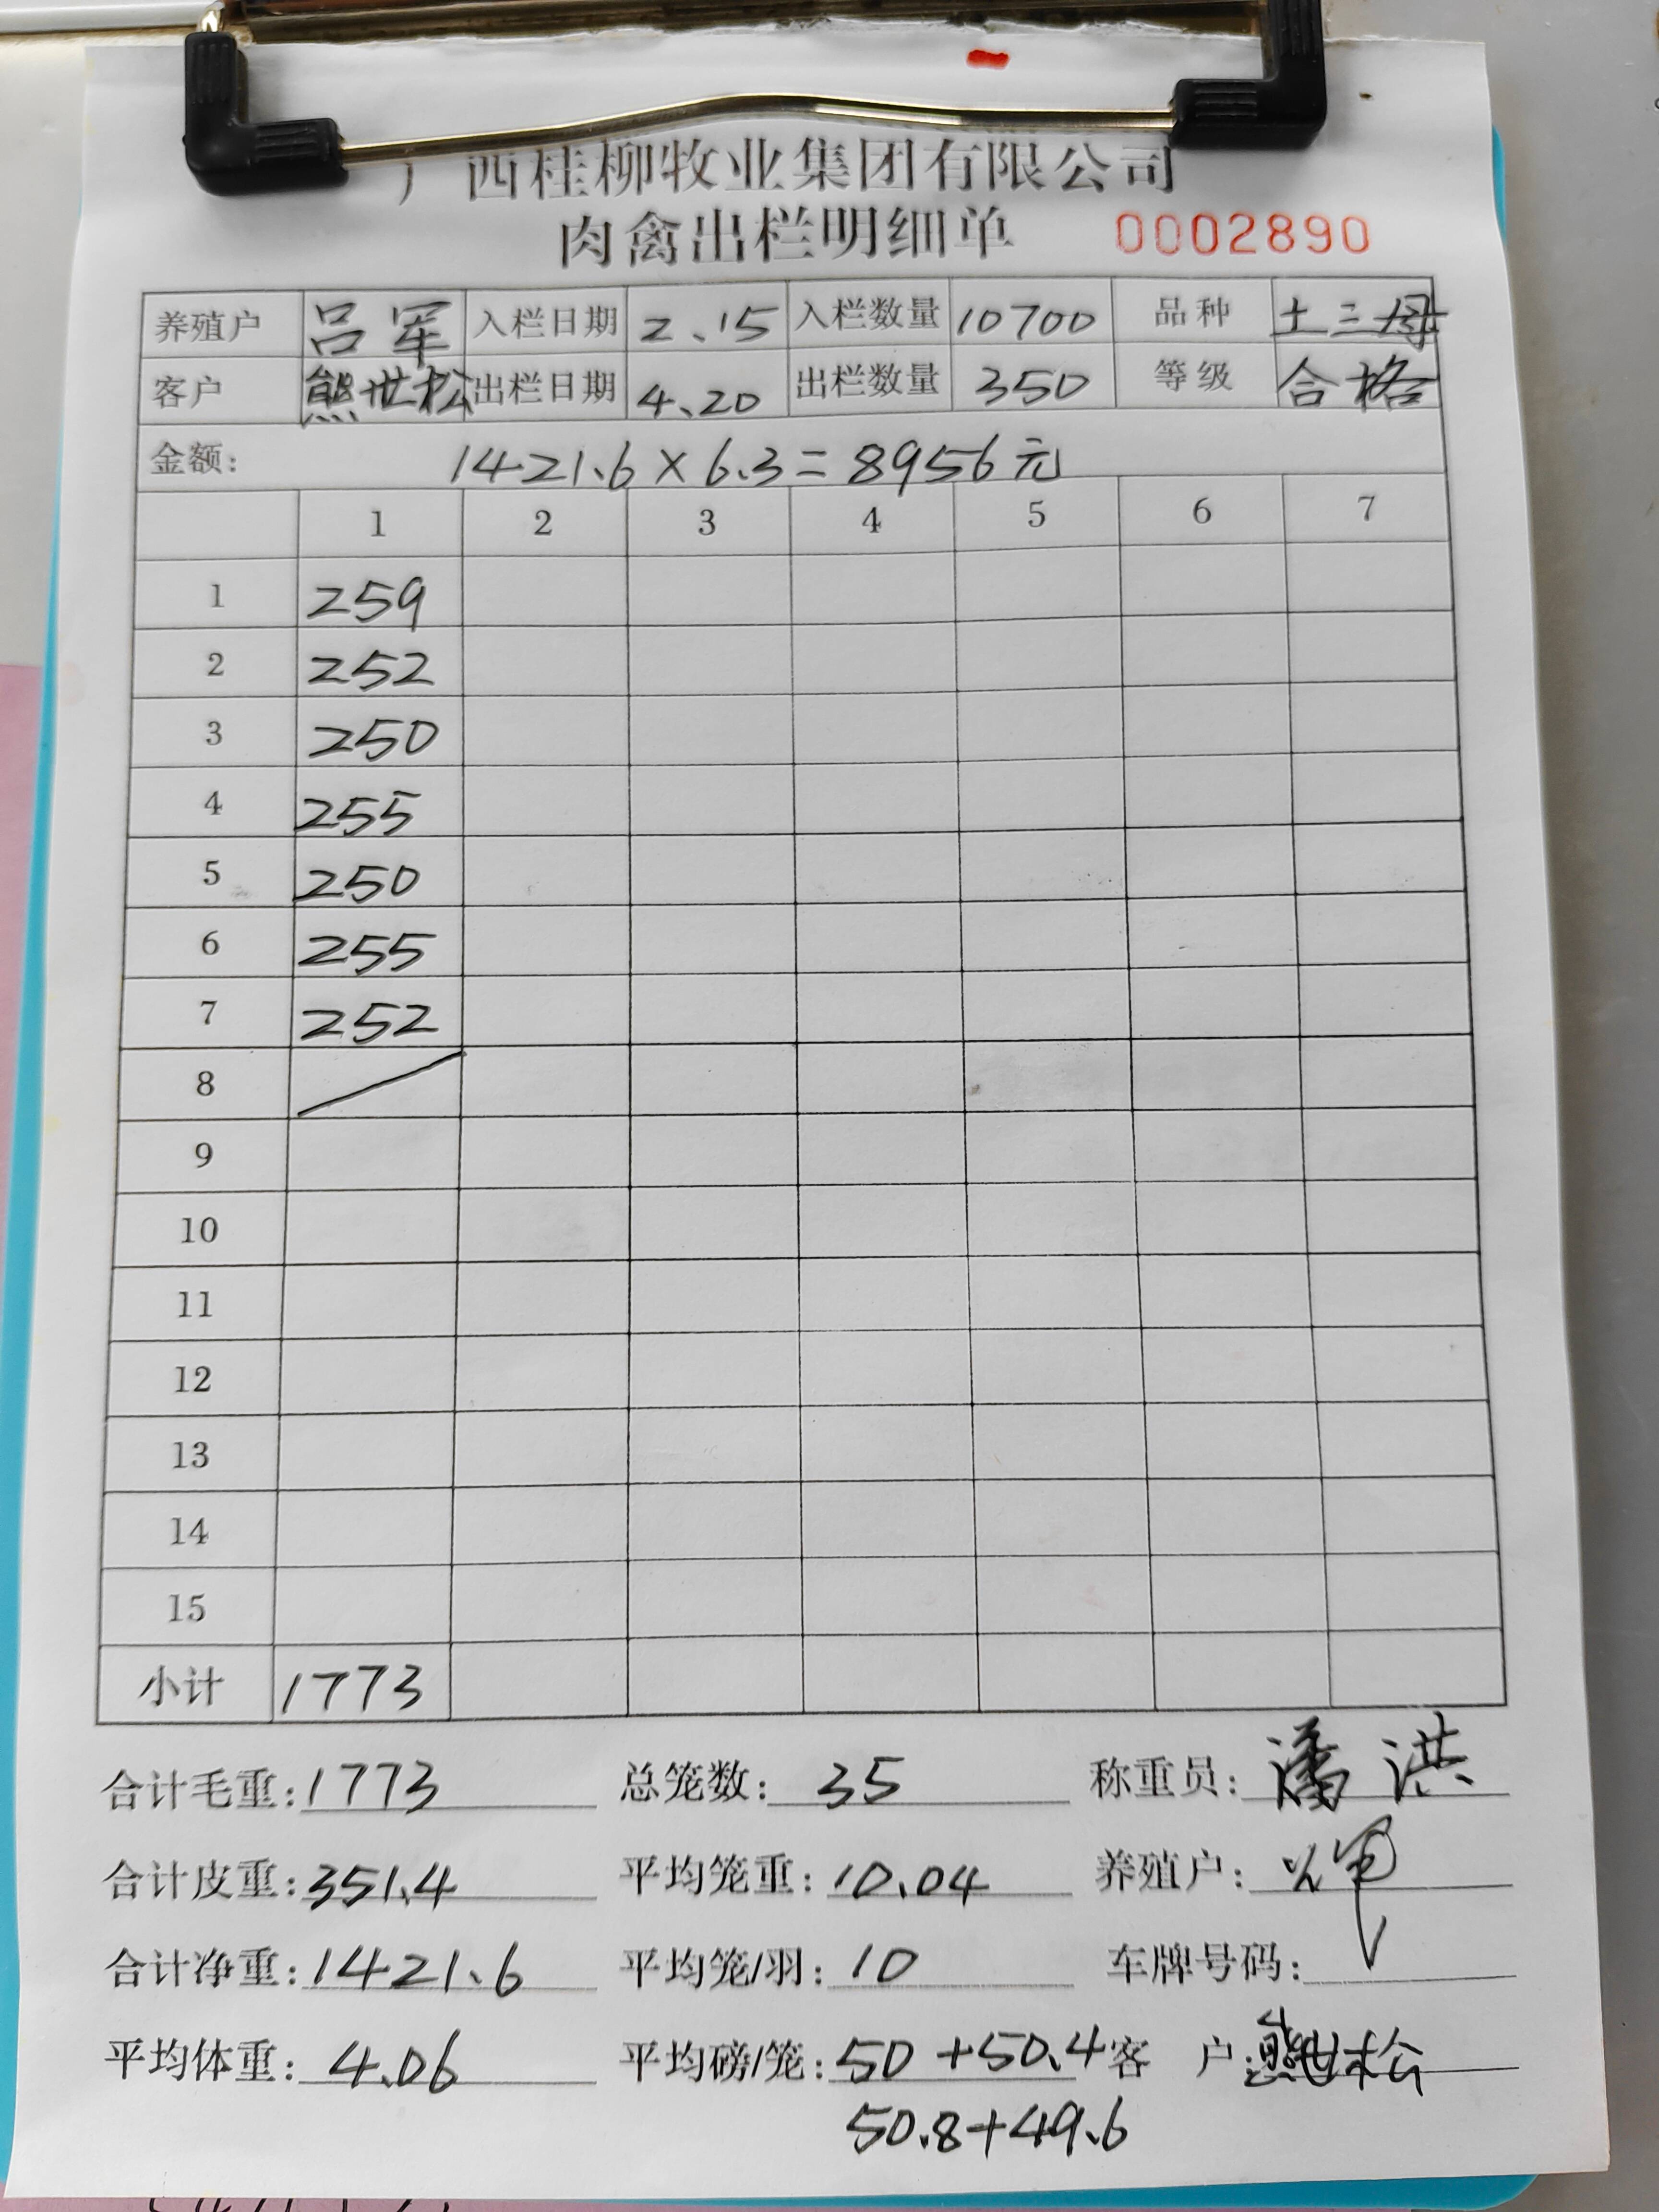 广西桂柳牧业集团有限公司
肉禽出栏明细单 0002890
养殖户 吕军 入栏日期 2.15 入栏数量 10700 品种 土三母
客户 熊世松 出栏日期 4.20 出栏数量 350 等级 合格
金额: 1421.6×6.3=8956元
1 2 3 4 5 6 7
1 259
2 252
3 250
4 255
5 250
6 255
7 252
8
9
10
11
12
13
14
15
小计 1773
合计毛重: 1773 总笼数: 35 称重员: 潘洪
合计皮重: 351.4 平均笼重: 10.04 养殖户:
合计净重: 1421.6 平均笼/羽: 10 车牌号码:
平均体重: 4.06 平均磅/笼: 50+50.4 客 户: 熊世松
50.8+49.6